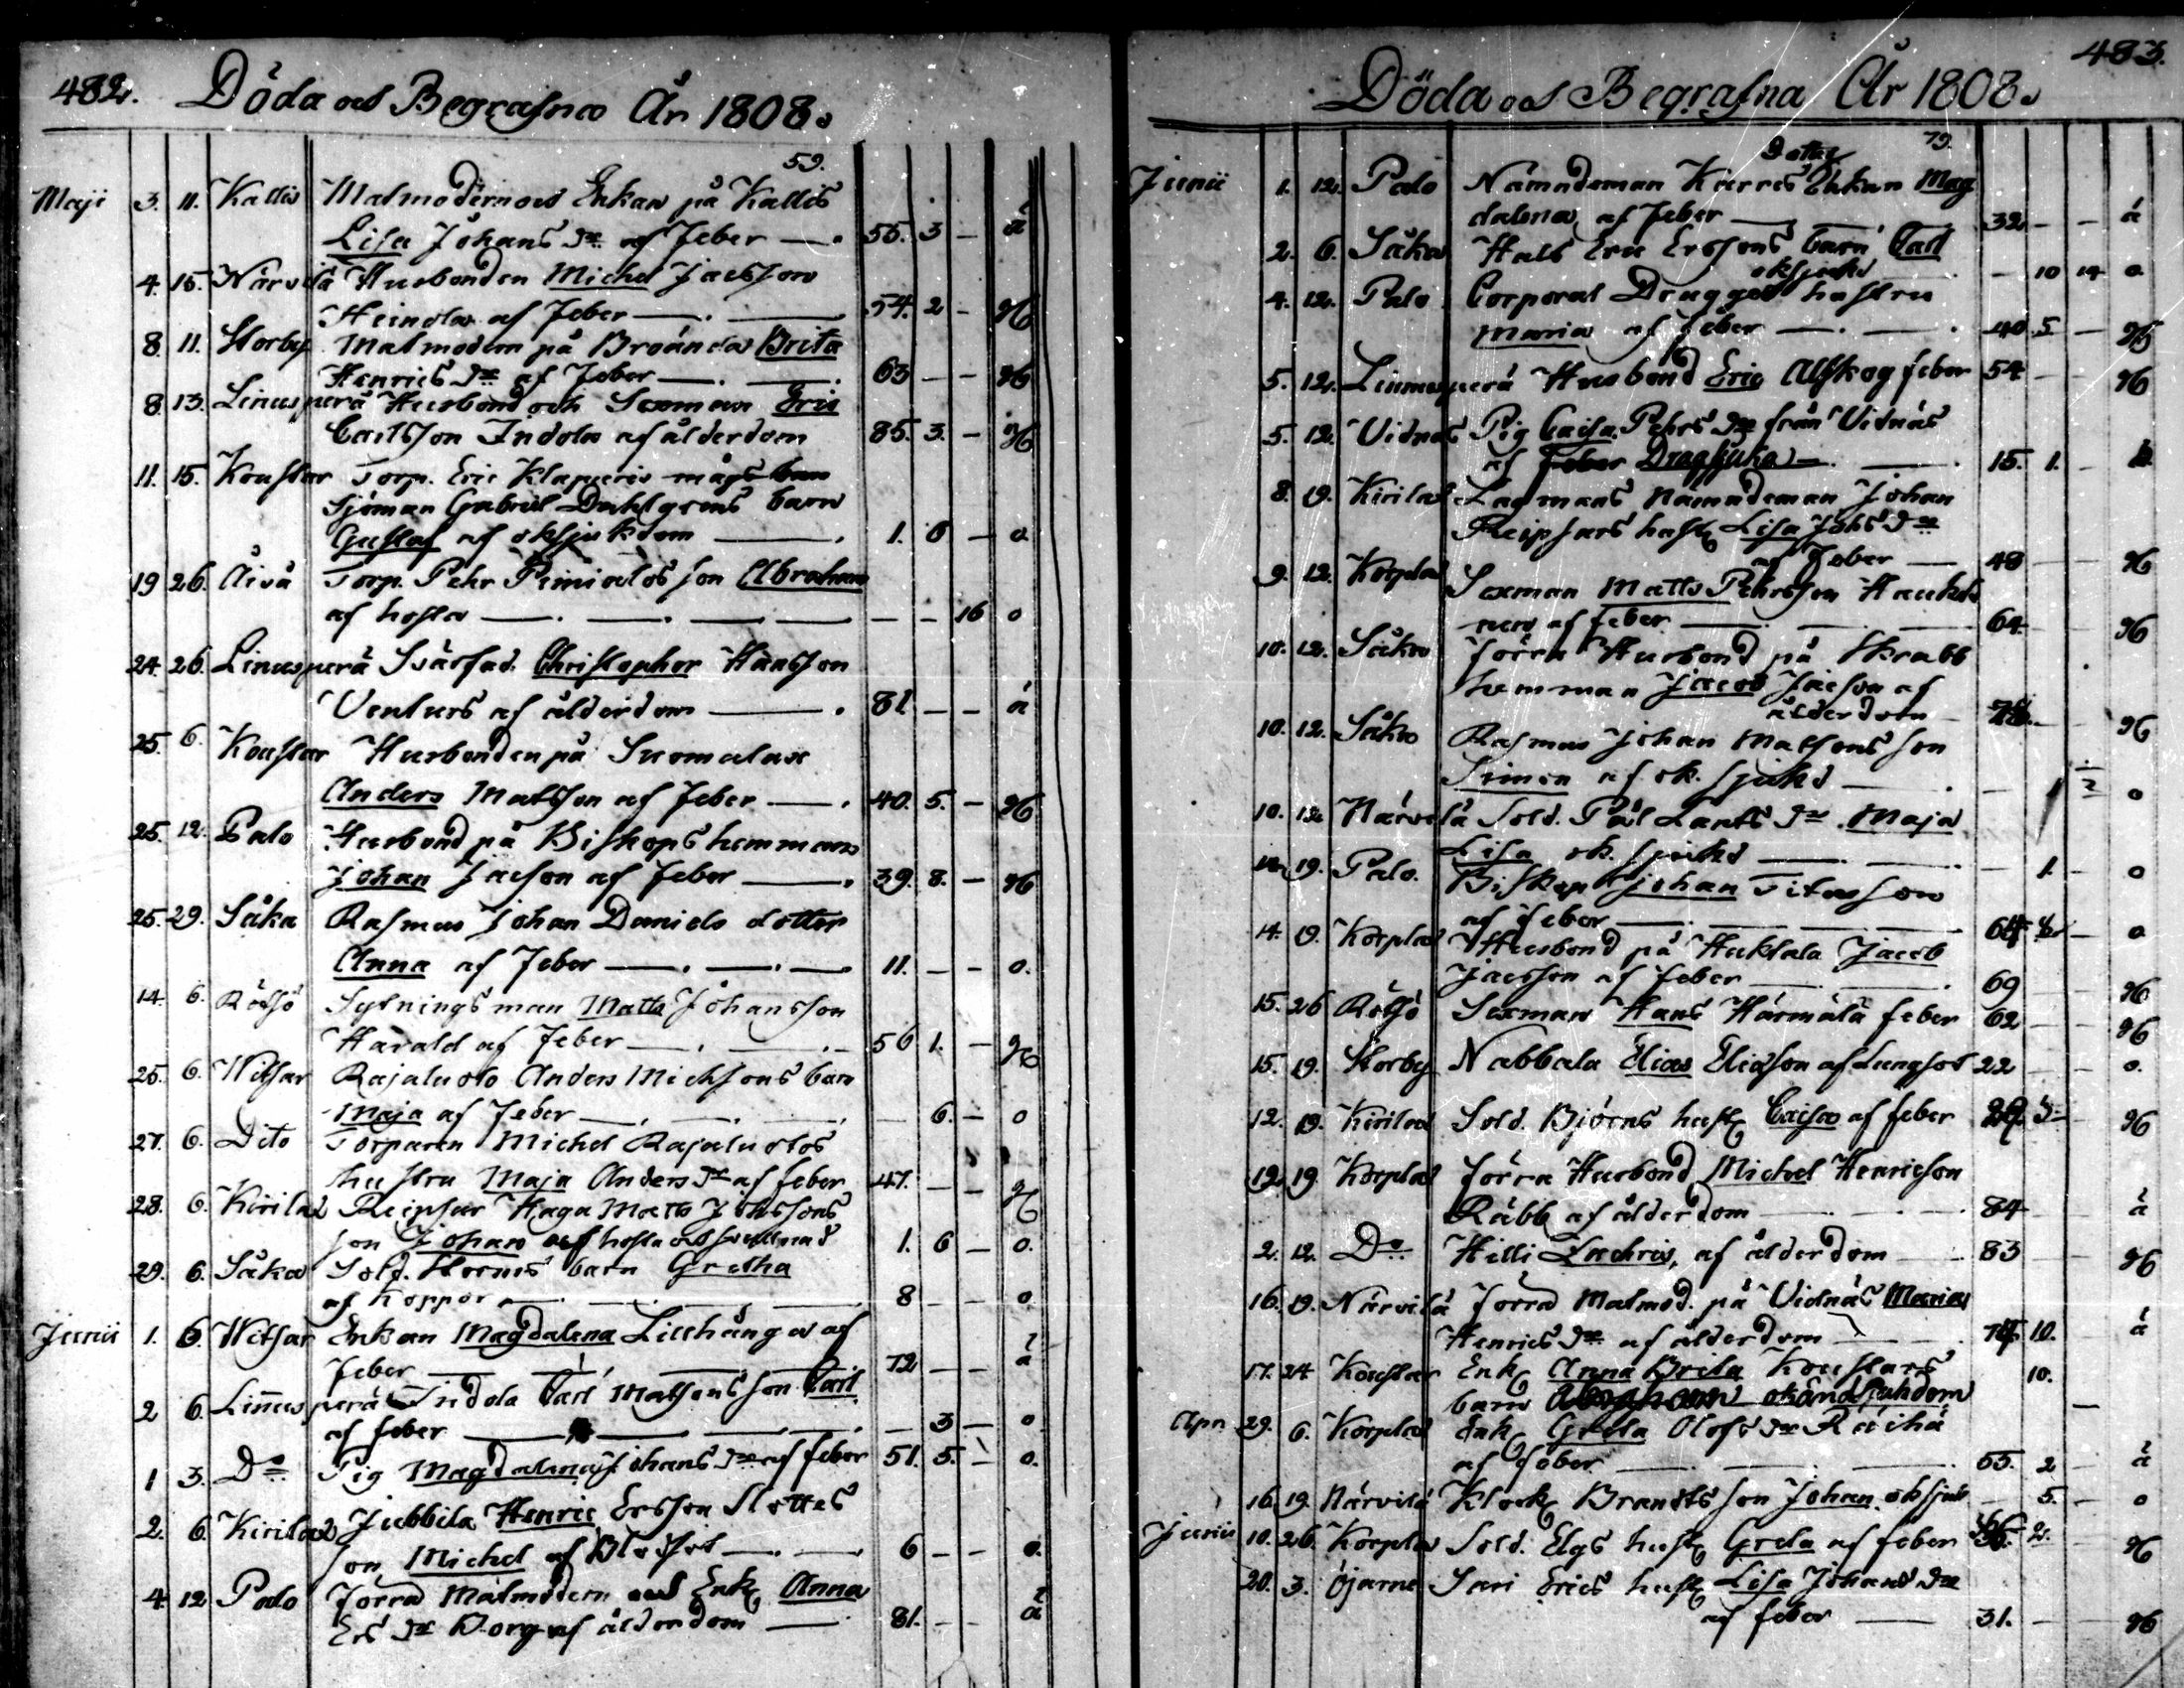 482. Döda och Begrafna År 1808.
59.
Maji 3. 11. Kallis Matmodern och Enkan på Kallis
Lisa Johans dr af Feber 55. 3 - ä
4. 15. Närvilä Husbonden Michel Jacsson
Heinola af Feber 54. 2 - gg
8. 11. Storby Matmodern på Broända Brita
Henrics dr af Feber 63 - - gg
8. 13. Linusperä Husbond och Sexman Eric
Carlsson Indola af ålderdom 85. 3. - gg
11. 15. Koustar Torp. Eric Klapuris mågs barn
Sjöman Gabriel Dahlgrens barn
Gustaf af oksjukdom 1. 6 - o
19 26. Äivä Torp. Pehr Peiniolos son Abraham
af hosta - - 16 o
24. 26. Linusperä Svärfad. Christopher Hansson
Ventus af ålderdom 81 - - ä
25. 6. Koustar Husbonden på Suomalax
Anders Matsson af Feber 40. 5. - gg
25. 12. Palo Husbond på Biskops hemman
Johan Jacson af Feber 39. 8. - gg
25. 29. Såka Rasmus Johan Daniels dotter
Anna af Feber 11. - - o.
14. 6. Rötjö Sytningsman Matts Johansson
Harald af Feber 56 1. - gg
25. 6. Witsar Rajaluoto Anders Michsons barn
Maja af Feber - 6. - o
27. 6. Dito Torparen Michel Rajaluotos
hustru Maja Anders dr af feber 47. - - gg
28. 6. Kirilax Reipsar Haga Matts Johssons
son Johan af hosta och 1. 6 - o.
29. 6. Såka Sold. Storms barn Gretha
af Koppor 8 - - o
Junii 1. 6. Witsar Enkan Magdalena Lillhånga af
Feber 72 - - ä
2 6. Linusperä Indola Carl Matsons son Carl
af feber - 3 - o
1 3. Do Pig Magdalena Johans dr af feber 51. 5. - o.
2. 6. Kirilax Jubbila Henric Ersson Slottes
son Michel af Blodsot 6 - - o.
4. 12 Palo Förra Matmodern och Enk Anna
Ers dr Borg af ålderdom 81. - - ä
Döda och Begrafna År 1808. 483.
79.
Dotter
Junii 1. 12. Palo Nämndeman Kärres Enkan Mag
dalena af Feber 32 - - ä
2. 6. Såka Hals Eric Erssons barn Carl
oksjukd - 10 14 o.
4. 12. Palo Corporal Drugges hustru
Maria af feber 40 5 - gg
5. 12. Linnusperä Husbond Eric Alskog feber 54 - gg
5. 12. Vidnäs Pig Caisa Pehrs dr från Vidnäs
af feber Dragsjuka 15. 1. -
8. 19. Kirilax Lagmans Nämndeman Johan
Reipsars hust Lisa Johs dr
af Feber 48 - gg
9. 12. Korplax Sexman Matts Pehrsson Hauka
nen af feber 64 gg
10. 12. Såka Förra Husbond på Skrabb
hemman Jacob Jacson af
ålderdom gg
10. 12. Såka Rasmus Johan Matsons son
Simon af ok. sjukd - o
10. 12. Närvilä Sold. Pål Lants dr Maja
Lisa ok. sjukd - 1. - o
12. 19. Palo. Biskop Johan Titusson
af feber o
14. 19. Korplax Husbond på Huktala Jacob
Jacsson af feber 69 gg
15. 26 Rötjö Sexman Hans Härmälä feber 62 - gg
15. 19. Storby Nabbala Elias Eliasson af Lungsot 22 - o.
12. 19. Kirilax Sold. Björns hust Caisa af feber gg
12. 19 Korplax Förra Husbond Michel Henricson
Räbb af ålderdom 84 ä
2. 12. Do Hilli Zachris, af ålderdom 83 gg
16. 19. Närvilä Förra Matmod. på Vidnäs Maria
Henrics dr af ålderdom 10. ä
17. 24 Koustar Enk Anna Brita Koustars 10.
barn okändsjukdom -
Apr. 29. 6. Korplax Enk Greta Olofs dr Räihä
af feber 55. 2 - ä
16. 19 Närvilä Klock Brandts son Johan oksjuk - 5. - o
Junii 10. 26. Korplax Sold. Elgs hust Greta af feber 2. gg
20. 3. Öjarne Sari Erics hust Lisa Johans dr
af feber 31. - gg